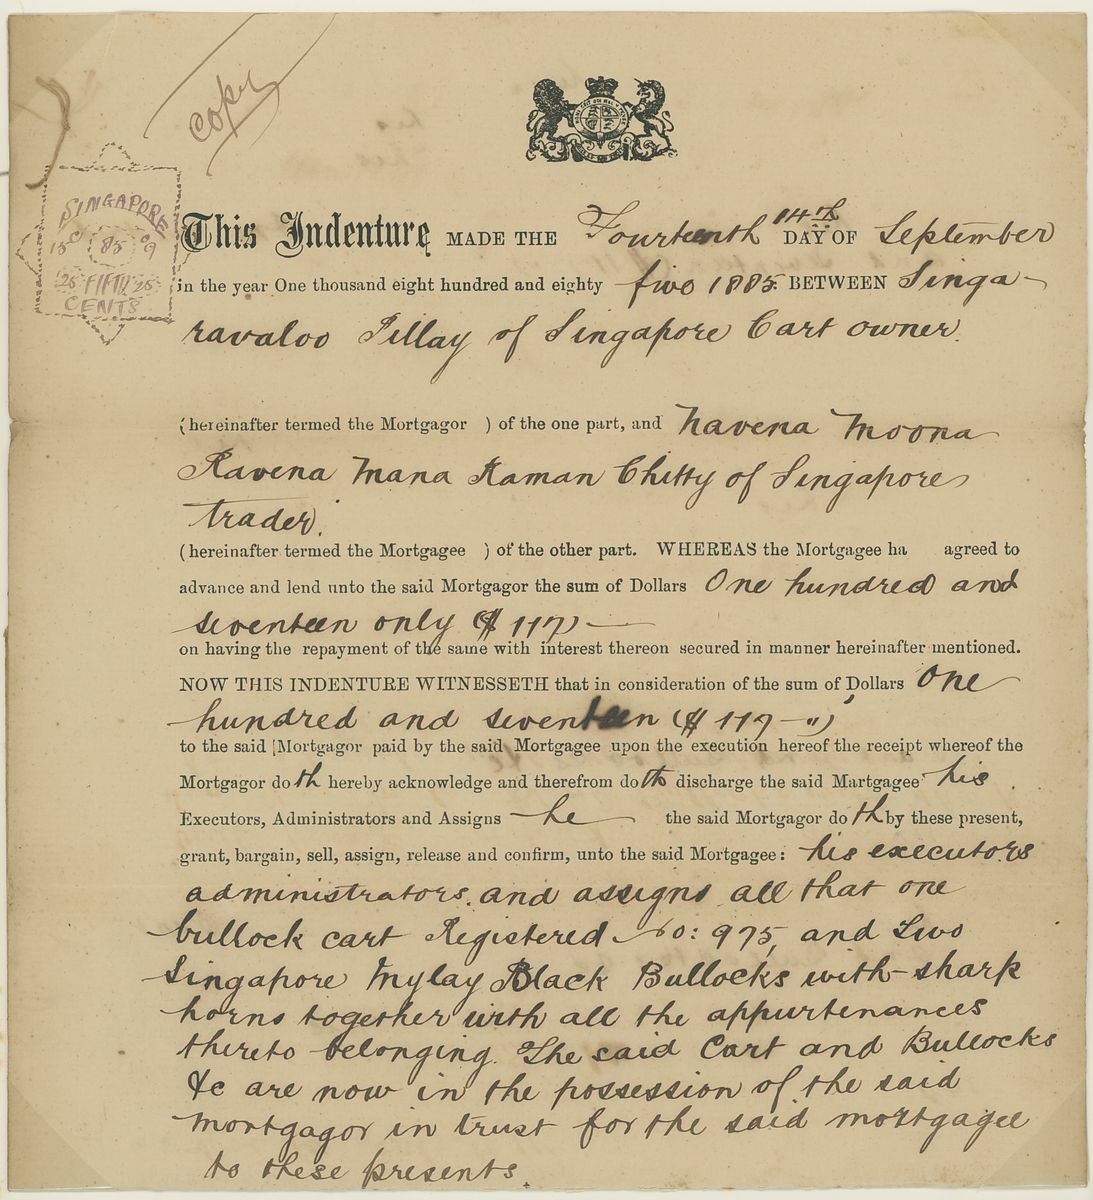 copy
SINGAPORE
15 C 85 C 9
25 FIFTY 25
CENTS
This Indenture MADE THE Fourteenth 14th DAY OF September
in the year One thousand eight hundred and eighty five 1885 BETWEEN Singa-
ravaloo Pillay of Singapore Cart owner.
(hereinafter termed the Mortgagor ) of the one part, and Navena Moona
Ravena Mana Raman Chitty of Singapore
trader.
(hereinafter termed the Mortgagee ) of the other part. WHEREAS the Mortgagee ha agreed to
advance and lend unto the said Mortgagor the sum of Dollars One hundred and
seventeen only ($ 117) —
on having the repayment of the same with interest thereon secured in manner hereinafter mentioned.
NOW THIS INDENTURE WITNESSETH that in consideration of the sum of Dollars One
hundred and seventeen ($ 117 - ")
to the said Mortgagor paid by the said Mortgagee upon the execution hereof the receipt whereof the
Mortgagor doth hereby acknowledge and therefrom doth discharge the said Martgagee his
Executors, Administrators and Assigns he the said Mortgagor doth by these present,
grant, bargain, sell, assign, release and confirm, unto the said Mortgagee: his executors
administrators. and assigns all that one
bullock cart Registered No: 975, and two
Singapore Mylay Black Bullocks with sharp
horns together with all the appurtenances
thereto belonging. The said Cart and Bullocks
&c are now in the possession of the said
mortgagor in trust for the said mortgagee
to these presents.